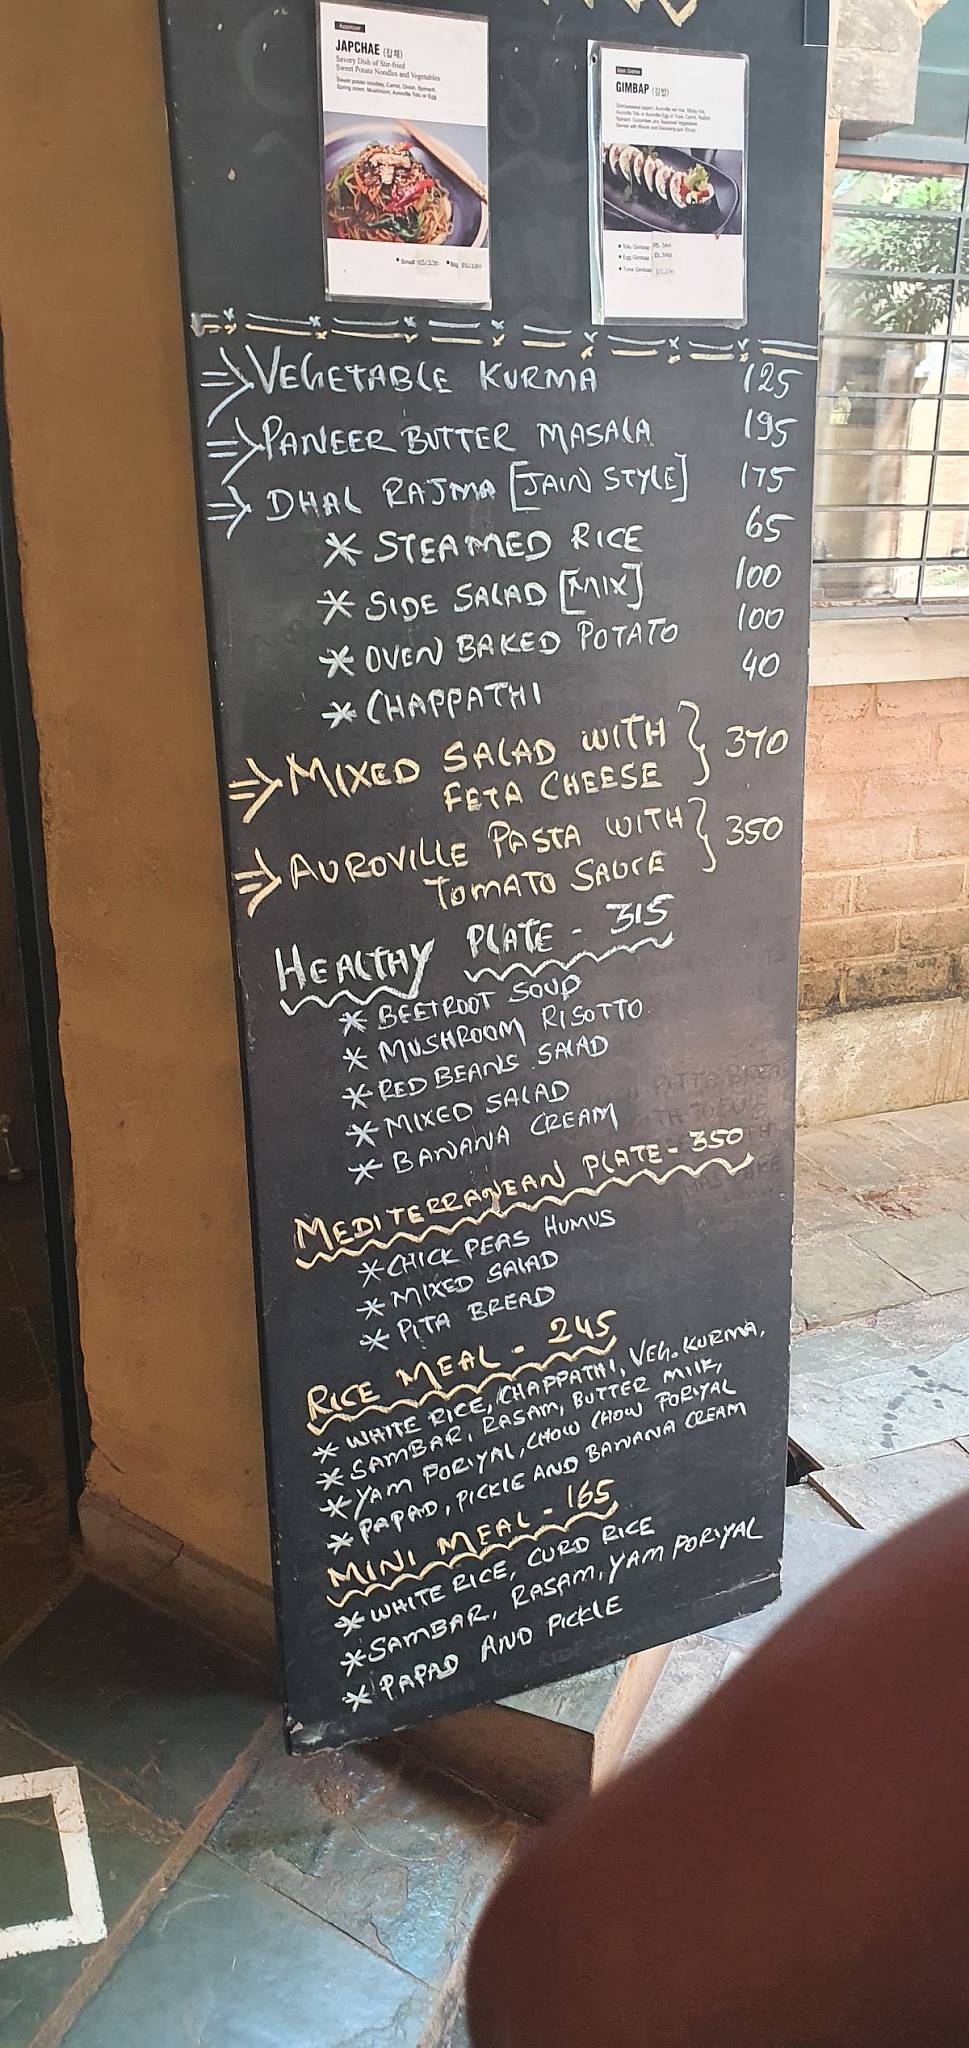 Appetizer
JAPCHAE (잡채)
Savory Dish of Stir-fried
Sweet Potato Noodles and Vegetables
Sweet potato noodles, Carrot, Onion, Spinach,
Spring onion, Mushroom, Auroville Tofu or Egg
• Small
• Big
Main Dishes
GIMBAP (김밥)
Auroville Tofu or Auroville Egg or Tuna, Carrot, Radish
Spinach, Cucumber, any Seasonal Vegetables
• Tofu Gimbap
• Egg Gimbap
• Tuna Gimbap
⇒ VEGETABLE KURMA 125
⇒ PANEER BUTTER MASALA 195
⇒ DHAL RAJMA [JAIN STYLE] 175
* STEAMED RICE 65
* SIDE SALAD [MIX] 100
* OVEN BAKED POTATO 100
* CHAPPATHI 40
⇒ MIXED SALAD WITH } 370
FETA CHEESE
⇒ AUROVILLE PASTA WITH } 350
TOMATO SAUCE
HEALTHY PLATE - 315
* BEETROOT SOUP
* MUSHROOM RISOTTO
* RED BEANS SALAD
* MIXED SALAD
* BANANA CREAM
MEDITERRANEAN PLATE - 350
* CHICK PEAS HUMUS
* MIXED SALAD
* PITA BREAD
RICE MEAL - 245
* WHITE RICE, CHAPPATHI, VEG. KURMA,
* SAMBAR, RASAM, BUTTER MILK,
* YAM PORIYAL, CHOW CHOW PORIYAL
* PAPAD, PICKLE AND BANANA CREAM
MINI MEAL - 165
* WHITE RICE, CURD RICE
* SAMBAR, RASAM, YAM PORIYAL
* PAPAD AND PICKLE